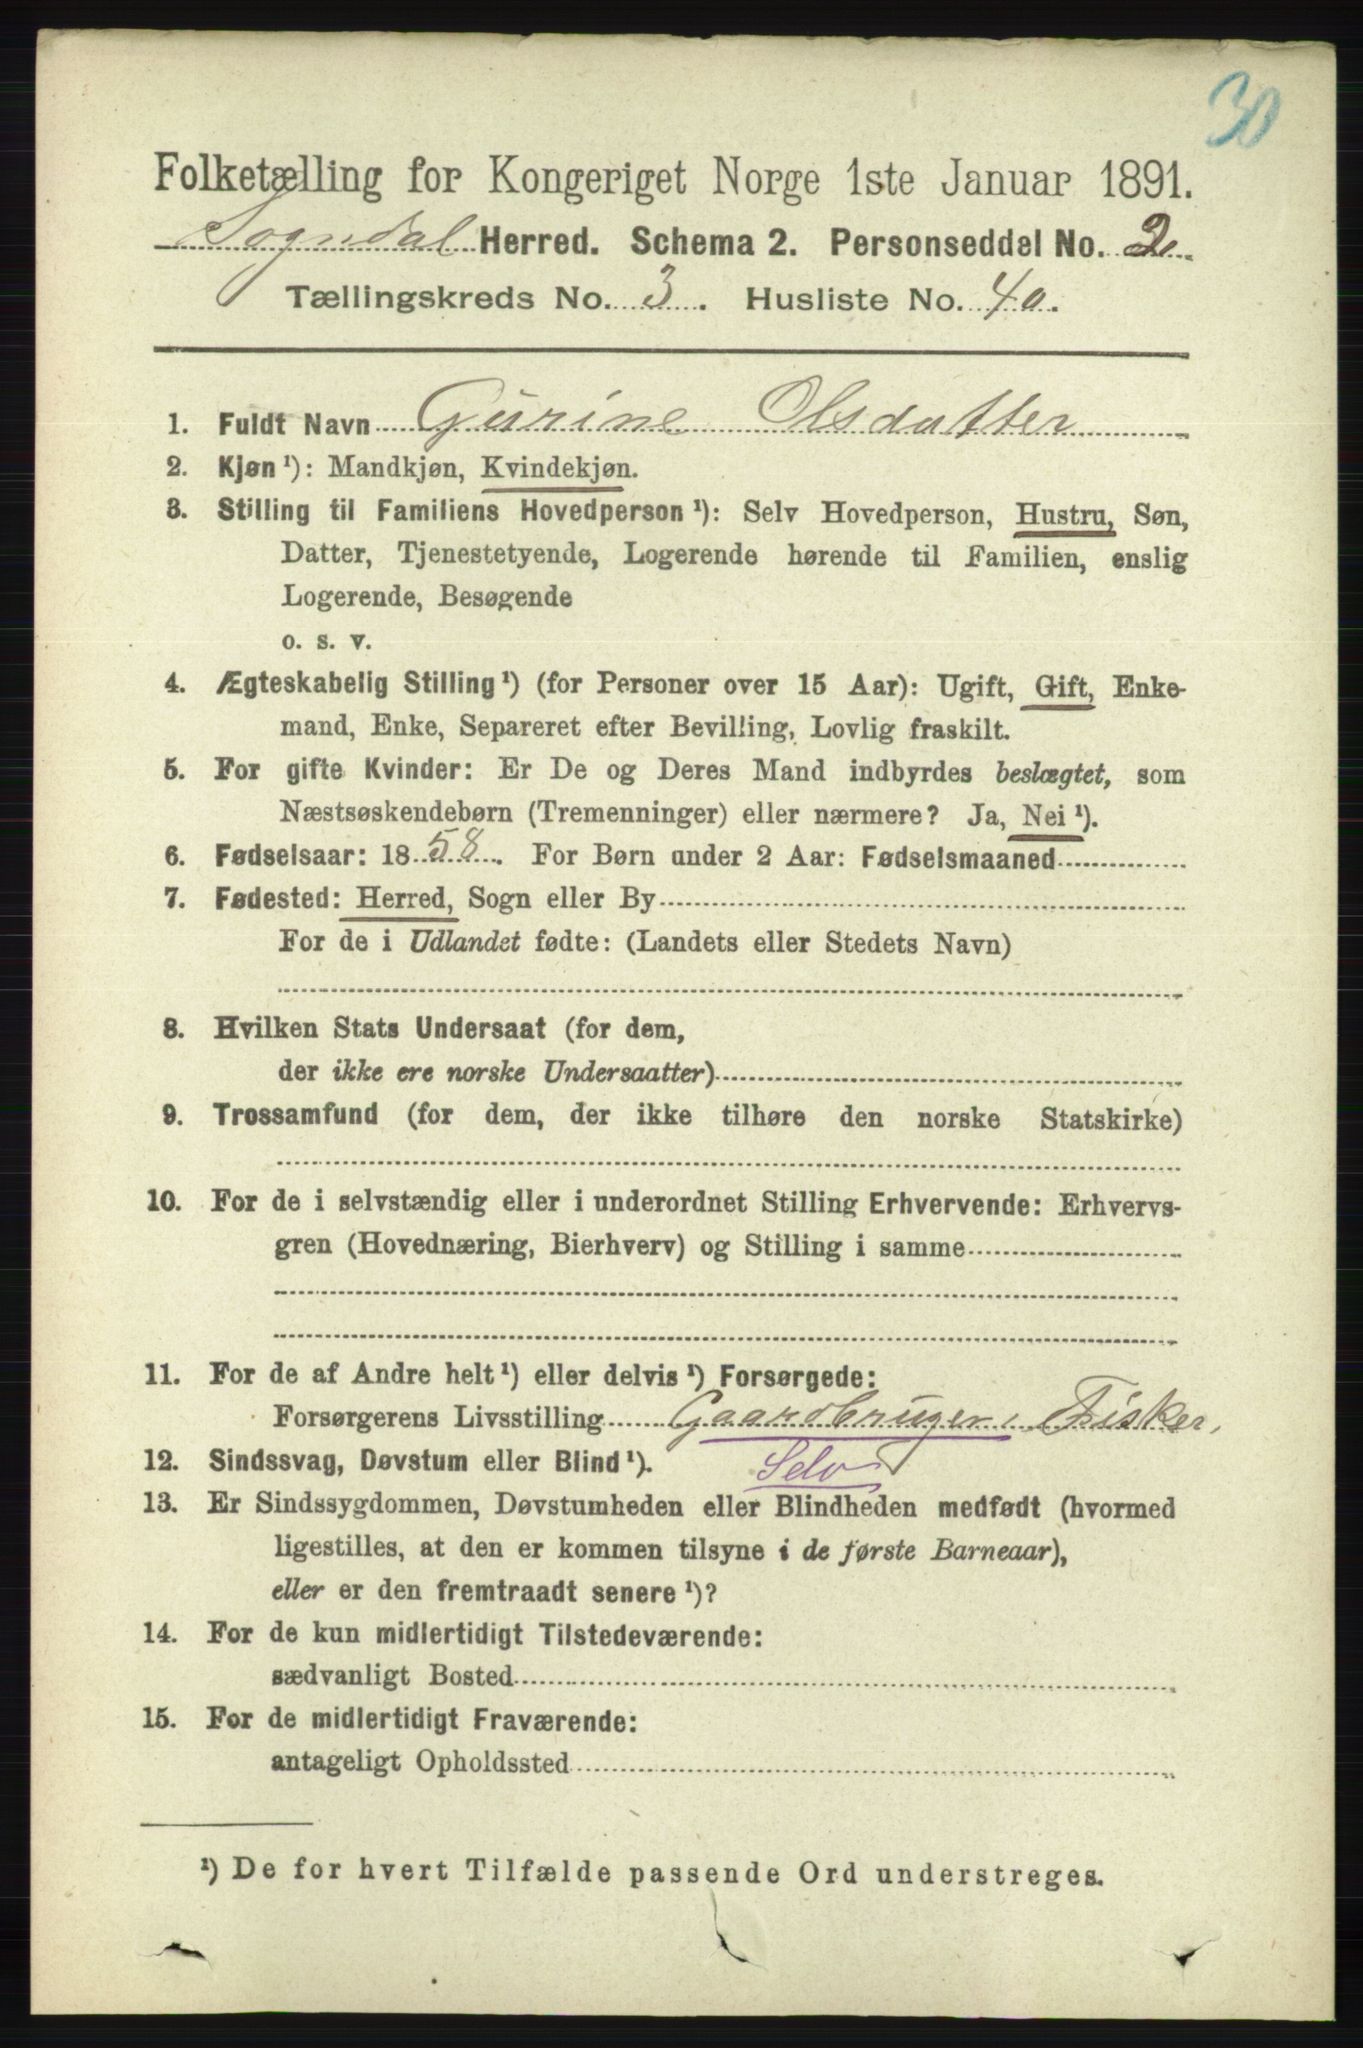 30
Folketælling for Kongeriget Norge 1ste Januar 1891.
Sogndal Herred. Schema 2. Personseddel No. 2
Tællingskreds No. 3. Husliste No. 40.
1. Fuldt Navn Gurine Olsdatter
2. Kjøn ¹): Mandkjøn, Kvindekjøn.
3. Stilling til Familiens Hovedperson ¹): Selv Hovedperson, Hustru, Søn,
Datter, Tjenestetyende, Logerende hørende til Familien, enslig
Logerende, Besøgende
o. s. v.
4. Ægteskabelig Stilling ¹) (for Personer over 15 Aar): Ugift, Gift, Enke-
mand, Enke, Separeret efter Bevilling, Lovlig fraskilt.
5. For gifte Kvinder: Er De og Deres Mand indbyrdes beslægtet, som
Næstsøskendebørn (Tremenninger) eller nærmere? Ja, Nei ¹).
6. Fødselsaar: 1858. For Børn under 2 Aar: Fødselsmaaned
7. Fødested: Herred, Sogn eller By
For de i Udlandet fødte: (Landets eller Stedets Navn)
8. Hvilken Stats Undersaat (for dem,
der ikke ere norske Undersaatter)
9. Trossamfund (for dem, der ikke tilhøre den norske Statskirke)
10. For de i selvstændig eller i underordnet Stilling Erhvervende: Erhvervs-
gren (Hovednæring, Bierhverv) og Stilling i samme
11. For de af Andre helt ¹) eller delvis ¹) Forsørgede:
Forsørgerens Livsstilling Gaardbruger, Fisker,
12. Sindssvag, Døvstum eller Blind ¹). Selv
13. Er Sindssygdommen, Døvstumheden eller Blindheden medfødt (hvormed
ligestilles, at den er kommen tilsyne i de første Barneaar),
eller er den fremtraadt senere ¹)?
14. For de kun midlertidigt Tilstedeværende:
sædvanligt Bosted
15. For de midlertidigt Fraværende:
antageligt Opholdssted
¹) De for hvert Tilfælde passende Ord understreges.